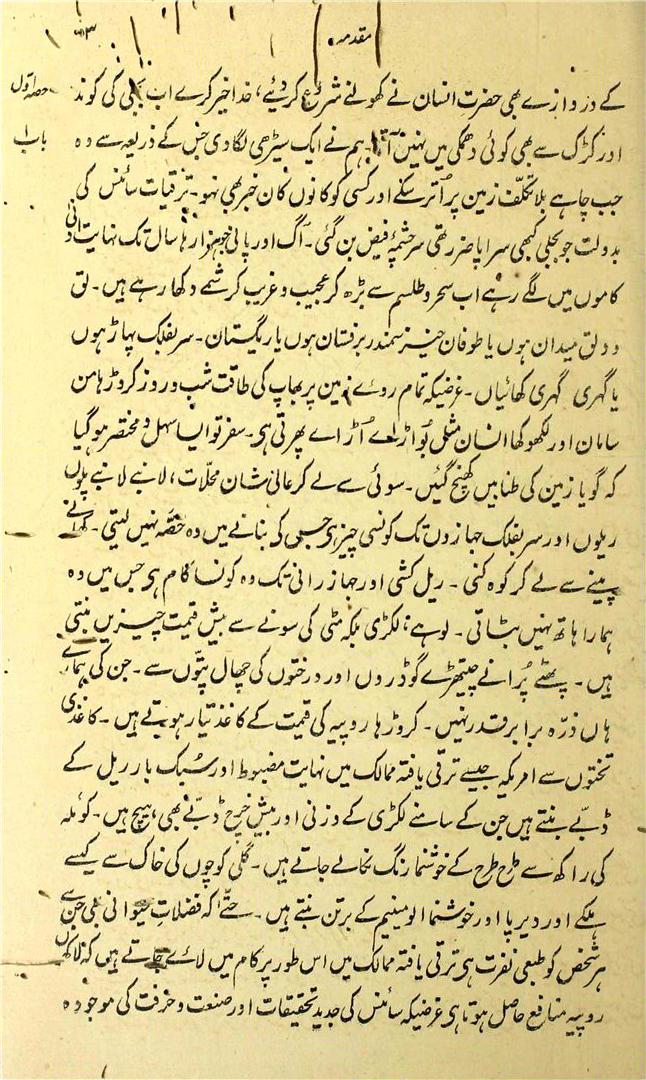 مقدمہ
۵۳
حصہ اول
باب ۱
کے دروازے بھی حضرت انسان نے کھولنے شروع کردئیے، خدا خیر کرے اب بجلی کی کوند
اور کڑک سے بھی کوئی دھمکی میں نہیں آتا۔ ہم نے ایک سیڑھی لگادی جس کے ذریعہ سے وہ
جب چاہے بلا تکلّف زمین پر اُتر سکے اور کسی کو کانوں کان خبر بھی نہو۔ ترقیات سائنس کی
بدولت جو بجلی کبھی سراپا ضرر تھی سرچشمۂ فیض بن گئی۔ آگ اور پانی جو ہزارہا سال تک نہایت ادنیٰ
کاموں میں لگے رہے اب سحر و طلسم سے بڑھ کر عجیب و غریب کرشمے دکھا رہے ہیں۔ لق
و دلق میدان ہوں یا طوفان خیز سمندر برفستان ہوں یا ریگستان۔ سربفلک پہاڑ ہوں
یا گہری گہری کھائیاں۔ غرضیکہ تمام روے زمین پر بھاپ کی طاقت شب و روز کروڑہا من
سامان اور لکھوکھا انسان مثل ہوا اڑاے اُڑاے پھرتی ہی۔ سفر تو ایسا سہل و مختصر ہوگیا
کہ گویا زمین کی طنابیں کھنچ گئیں۔ سوئی سے لے کر عالی شان محلّات، لانبے لانبے پلوں
ریلوں اور سربفلک جہازوں تک کونسی چیز ہی جس کی بنانے میں وہ حصّہ نہیں لیتی۔ کھانے
پینے سے لے کر کوہ کنی۔ ریل کشی اور جہاز رانی تک وہ کونسا کام ہی جس میں وہ
ہمارا ہاتھ نہیں بٹاتی۔ لوہے، لکڑی بلکہ مٹی کی سونے سے بیش قیمت چیزیں بنتی
ہیں۔ پھٹے پُرانے چیتھڑے گوڈروں اور درختوں کی چھال پتّوں سے۔ جن کی ہمارے
ہاں ذرّہ برابر قدر نہیں۔ کروڑہا روپیہ کی قیمت کے کاغذ تیار ہوتے ہیں۔ کاغذی
تختوں سے امریکہ جیسے ترقی یافتہ ممالک میں نہایت مضبوط اور سُبک بار ریل کے
ڈبّے بنتے ہیں جن کے سامنے لکڑی کے وزنی اور بیش خرچ ڈبّے بھی ہیچ ہیں۔ کوئلہ
کی راکھ سے طرح طرح کے خوشنما رنگ نکالے جاتے ہیں۔ گلی کوچوں کی خاک سے کیسے
ہلکے اور دیرپا اور خوشنما الومینیم کے برتن بنتے ہیں۔ حتّے کہ فضلاتِ حیوانی بھی جن سے
ہر شخص کو طبعی نفرت ہی ترقی یافتہ ممالک میں اس طور پر کام میں لاے جاتے ہیں کہ لاکھوں
روپیہ منافع حاصل ہوتا ہی غرضیکہ سائنس کی جدید تحقیقات اور صنعت و حرفت کی موجودہ